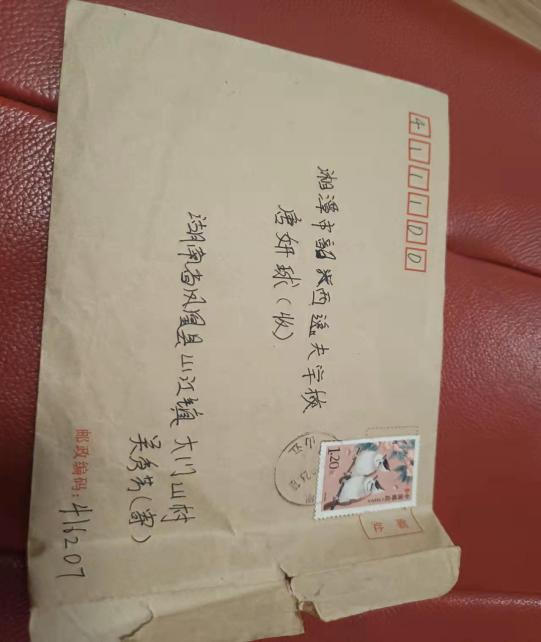 411100
湘潭市韶西逸夫学校
唐妍球（收）
湖南省凤凰县山江镇大门山村
吴秀英（寄）
邮政编码：416207
1.20
中国邮政